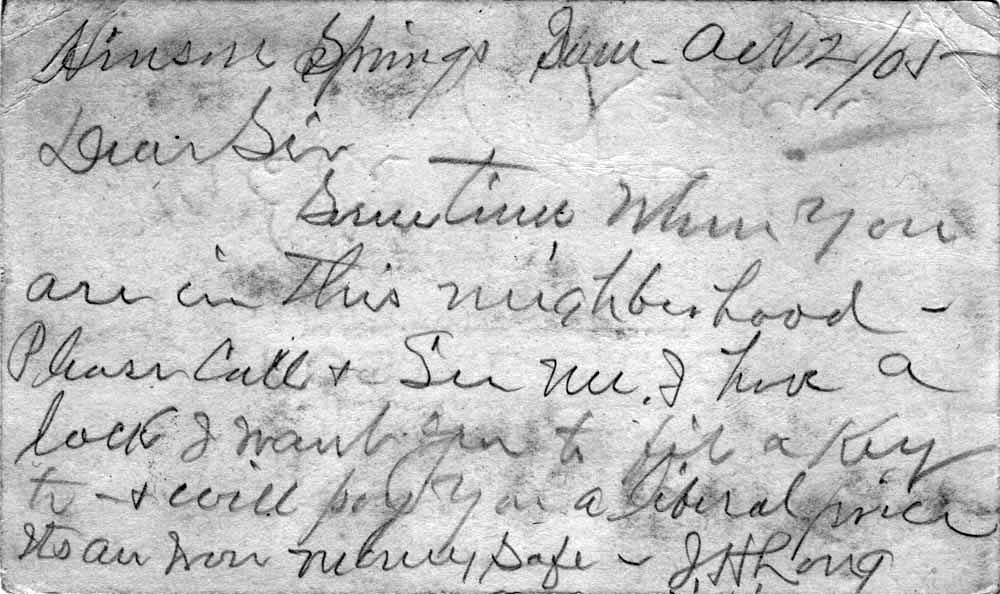 Hinson Springs Tenn - Oct 12/05 -
Dear Sir
Sometime When You
are in This neighborhood -
Please Call & See me. I have a
lock I want you to fit a Key
to - & will pay you a liberal price
Its an Iron money Safe - J. H. Long